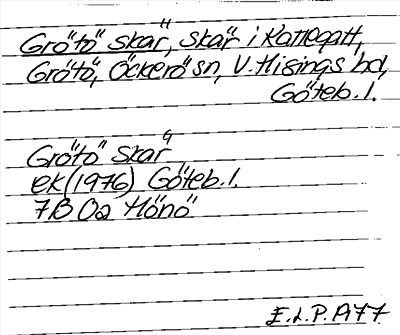 Grötö skär, skär i Kattegatt,
Grötö, Öckerö sn, V. Hisings hd,
Göteb. l.
Grötö skär
ek (1976) Göteb. l.
7B 0a Hönö
E.L.P. A77